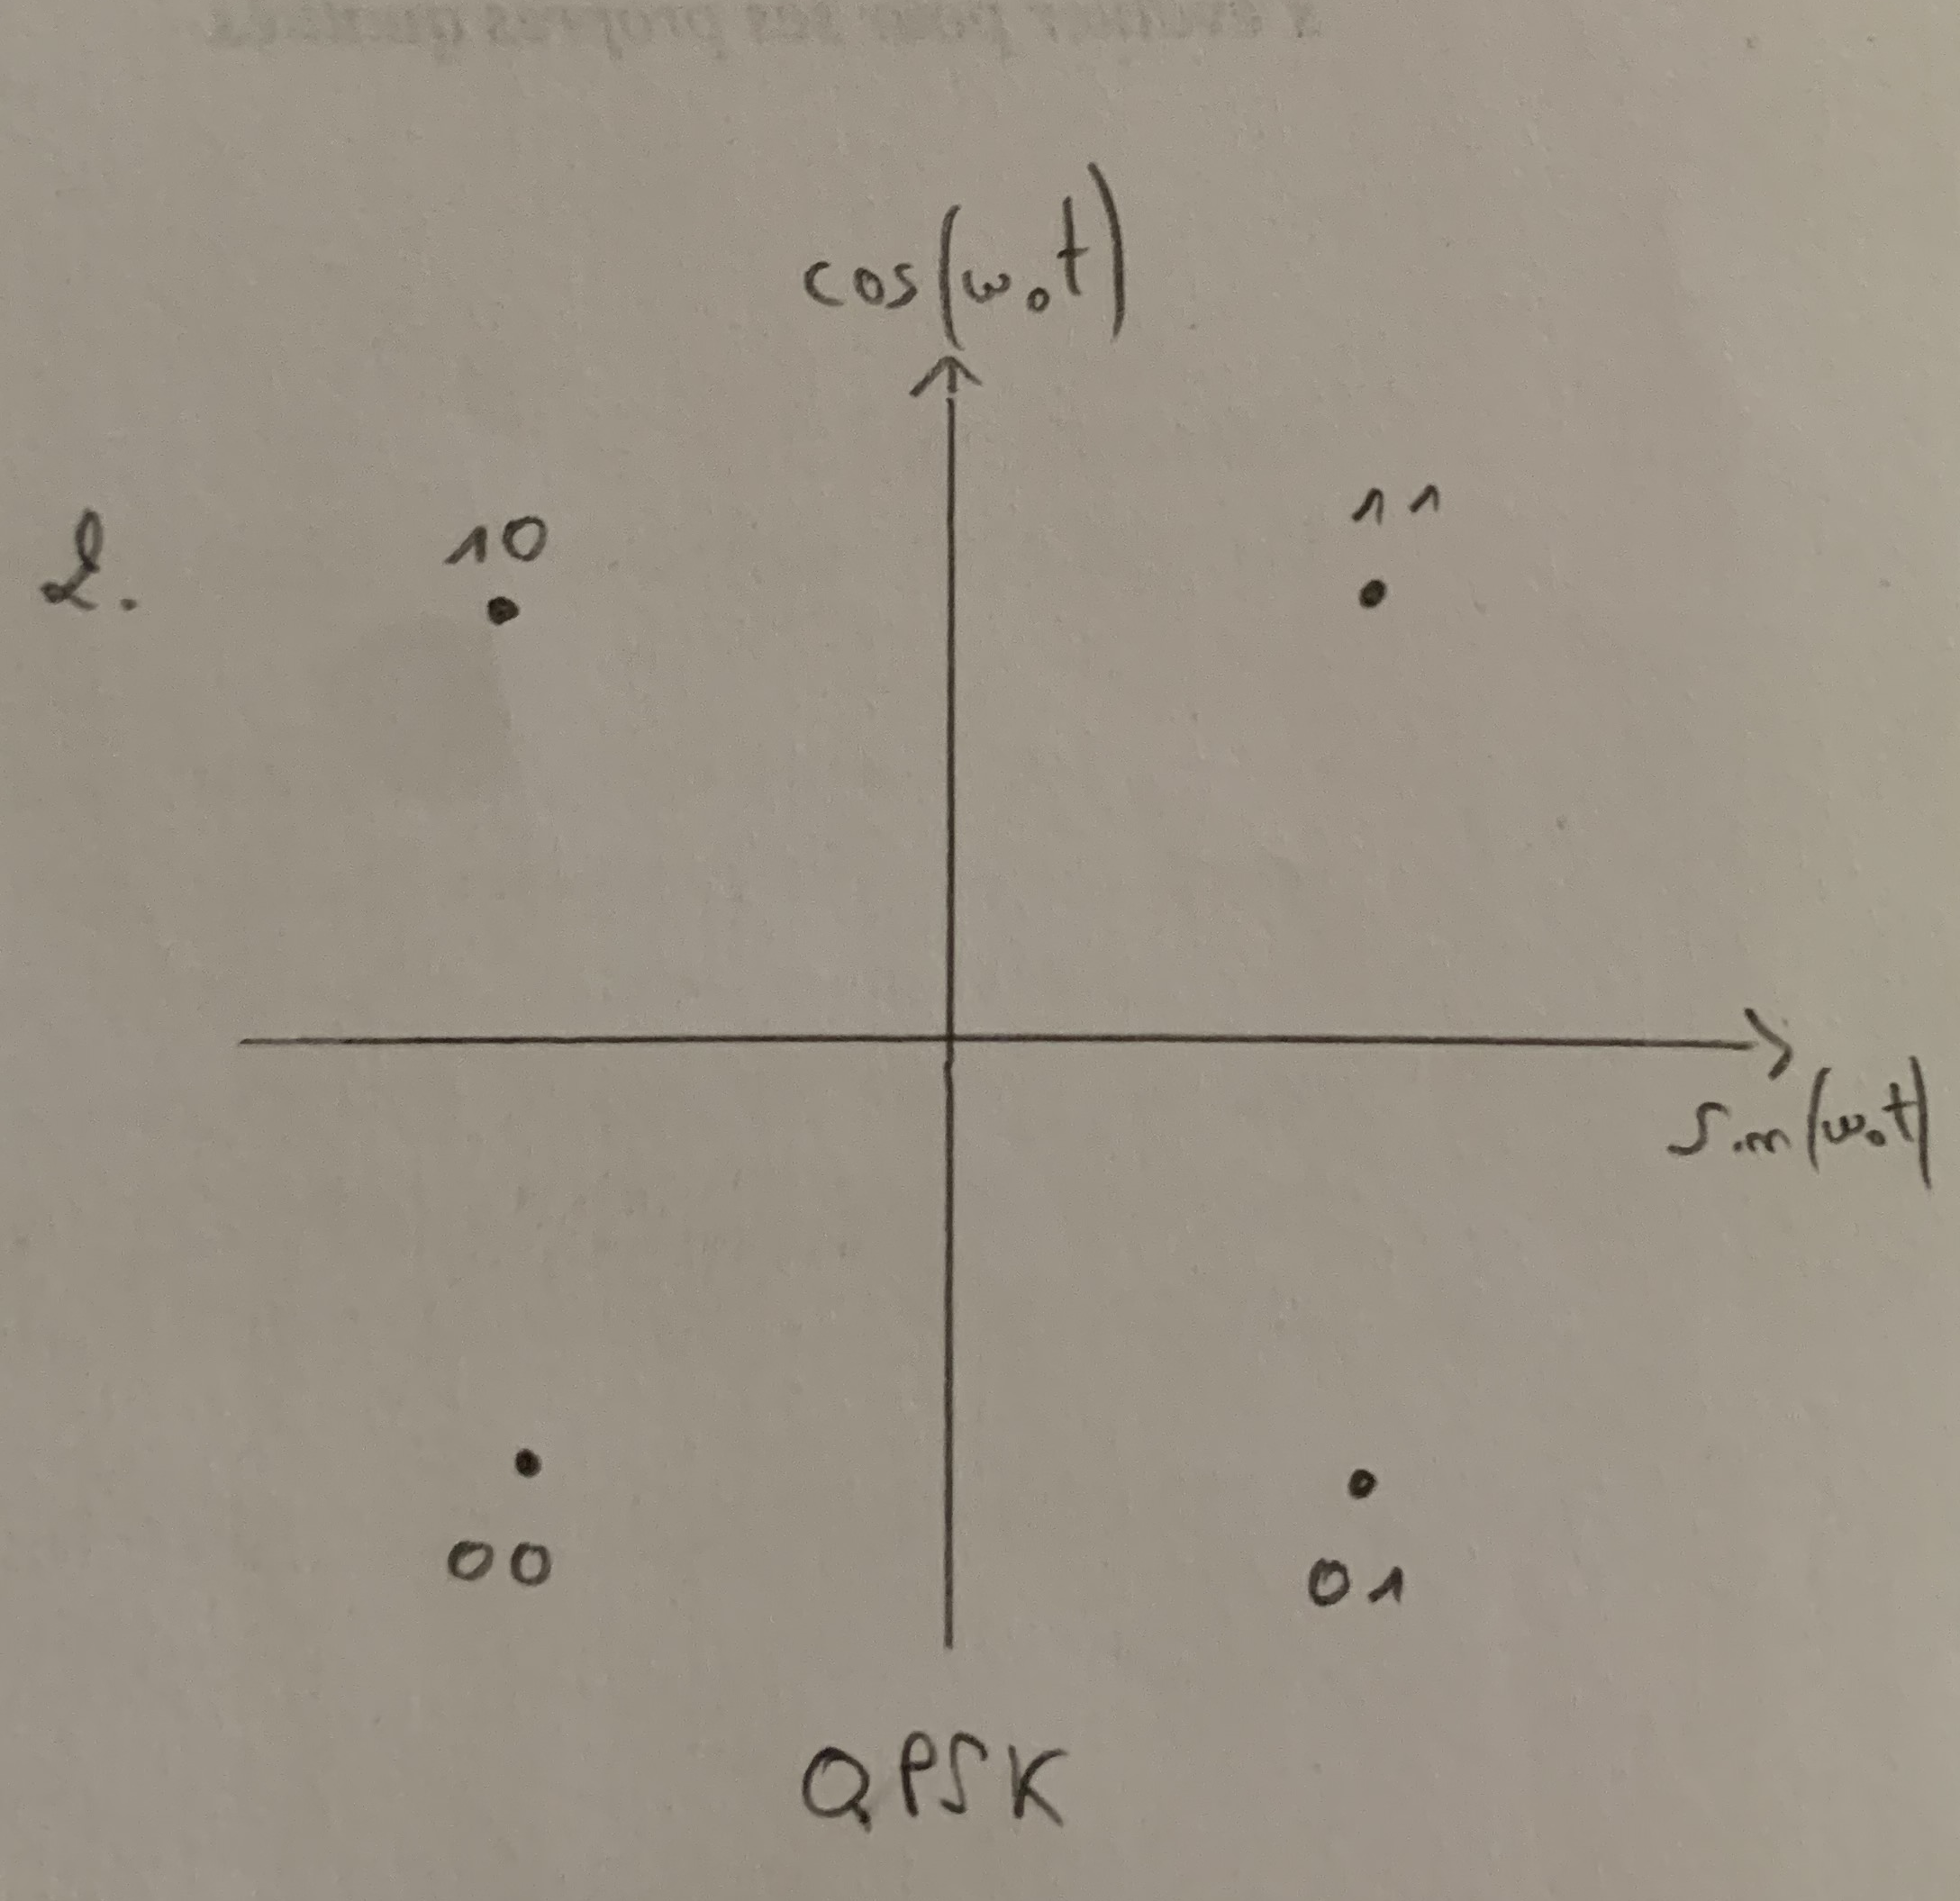 cos(ω₀t)
2.
10
11
sin(ω₀t)
00
01
QPSK